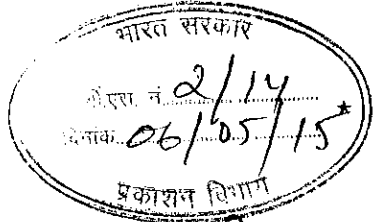 भारत सरकार
नं. 2/14
दिनांक 06/05/15
प्रकाशन विभाग